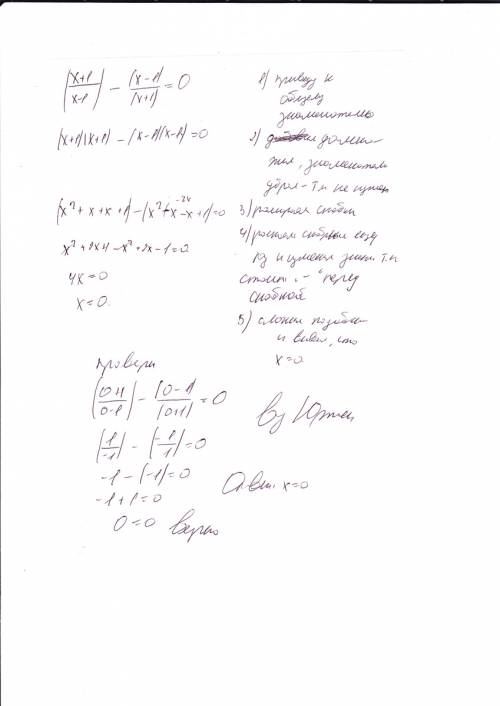 (x+1)/(x-1) - (x-1)/(x+1) = 0
(x+1)(x+1) - (x-1)(x-1) = 0
(x² + x + x + 1) - (x² - x - x + 1) = 0
-2x
x² + 2x + 1 - x² + 2x - 1 = 0
4x = 0
x = 0.
1) привожу к
общему
знаменателю
2)
знаменатель
убрал - т.к не нужен
3) раскрываю скобки
4)
и изменил знаки т.к
стоит "-" перед
скобкой
5) сложил подобные
и вывел, что
x = 0
проверка
(0+1)/(0-1) - (0-1)/(0+1) = 0
(1/-1) - (-1/1) = 0
-1 - (-1) = 0
-1 + 1 = 0
0 = 0 верно
Ответ: x = 0